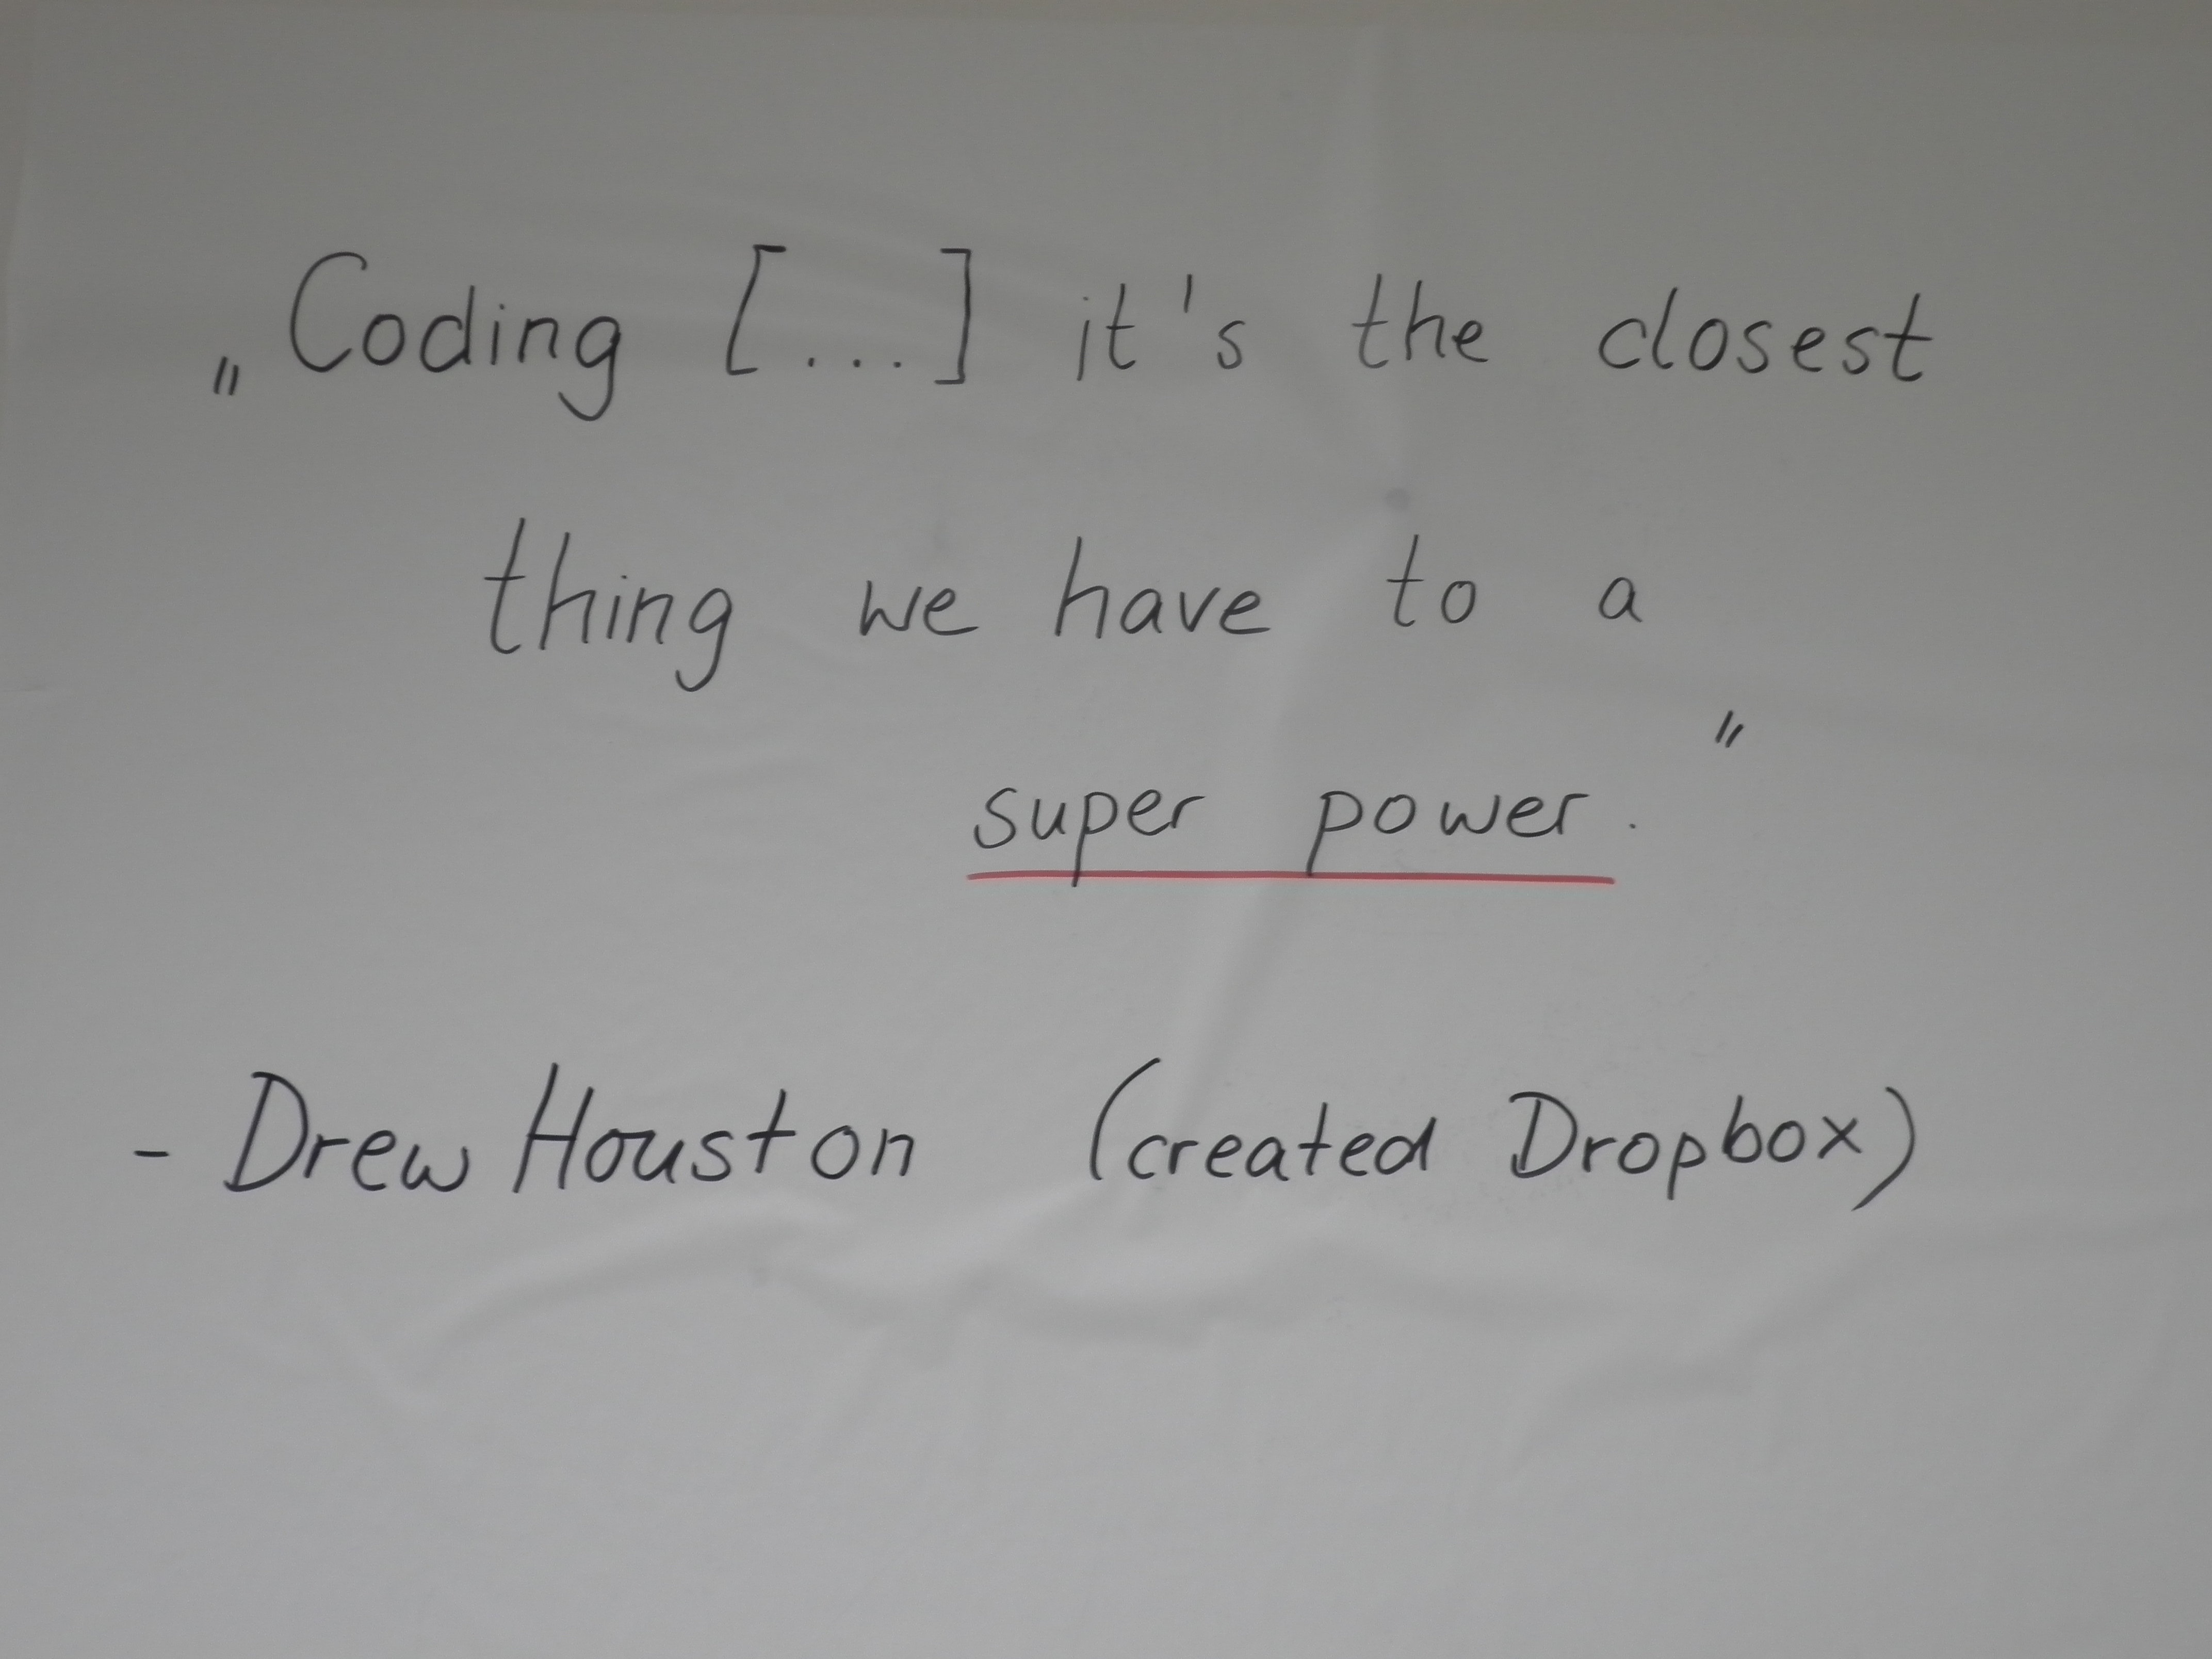 „Coding [...] it's the closest
thing we have to a
super power."
- Drew Houston (created Dropbox)